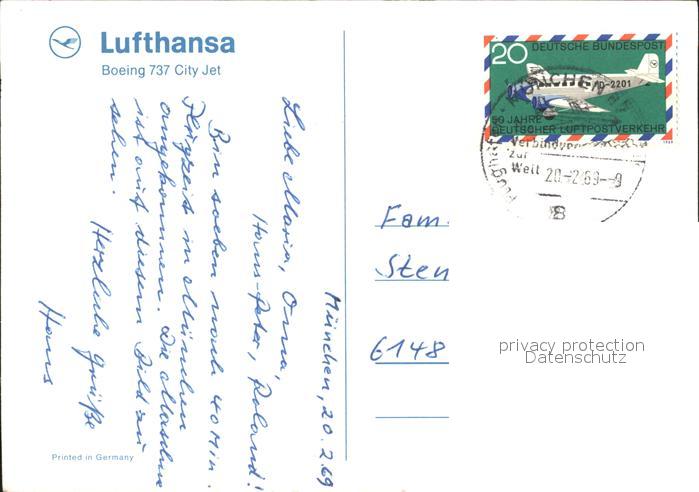 Lufthansa
Boeing 737 City Jet
München, 20.2.69
Liebe Maria, Oma,
Hans-Peter, Roland!
Bin soeben nach 40 Min.
Flugzeit in München
angekommen. Die Maschine
ist auf diesem Bild zu
sehen.
Herzliche Grüße
Hans
Printed in Germany
20 DEUTSCHE BUNDESPOST
D-2201
50 JAHRE
DEUTSCHER LUFTPOSTVERKEHR
1969
MÜNCHEN
Flughafen
Verbindung
zur
Welt
20.-2.69.--9
Fam.
Sten
6148
privacy protection
Datenschutz